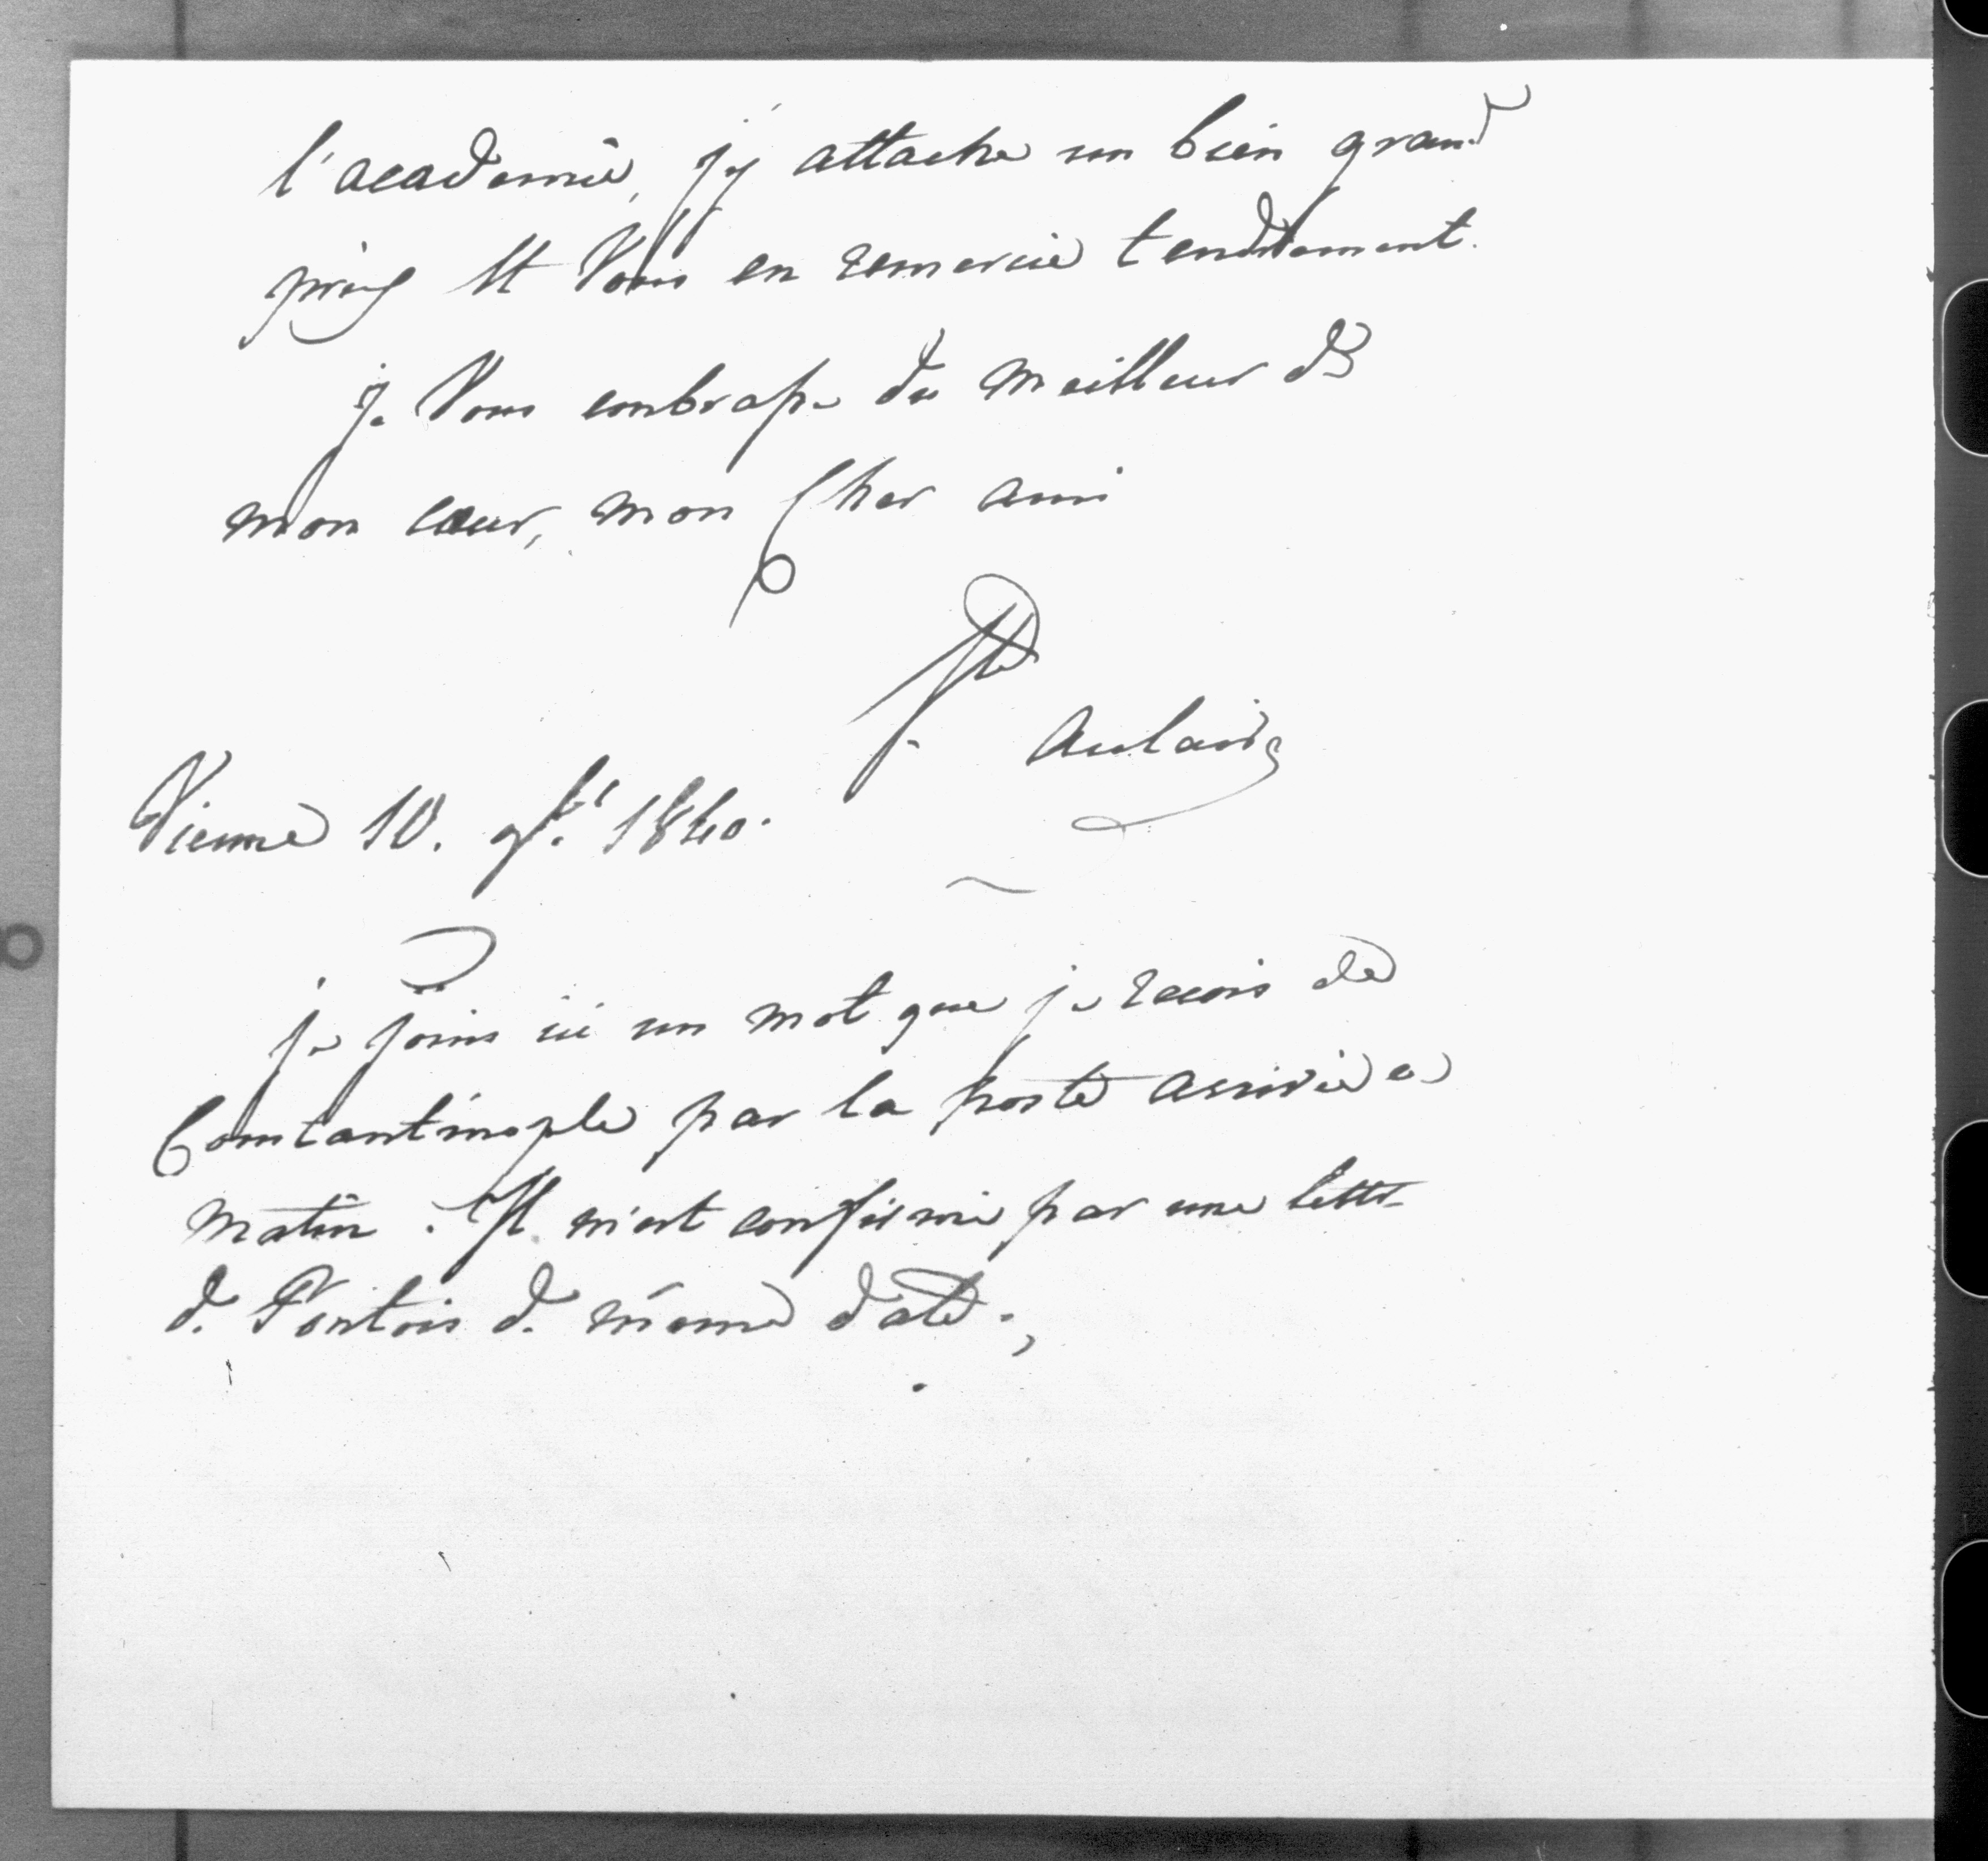 l'académie, j'y attache un bien grand
prix et Vous en remercie tendrement.
je Vous embrasse du meilleur de
mon cœur, mon Cher ami
Ste Aulaire
Vienne 10. 9bre 1840.
je joins ici un mot que je reçois de
Constantinople par la poste arrivée ce
matin. Il m'est confirmé par une lettre
de Pontois de même date.
8